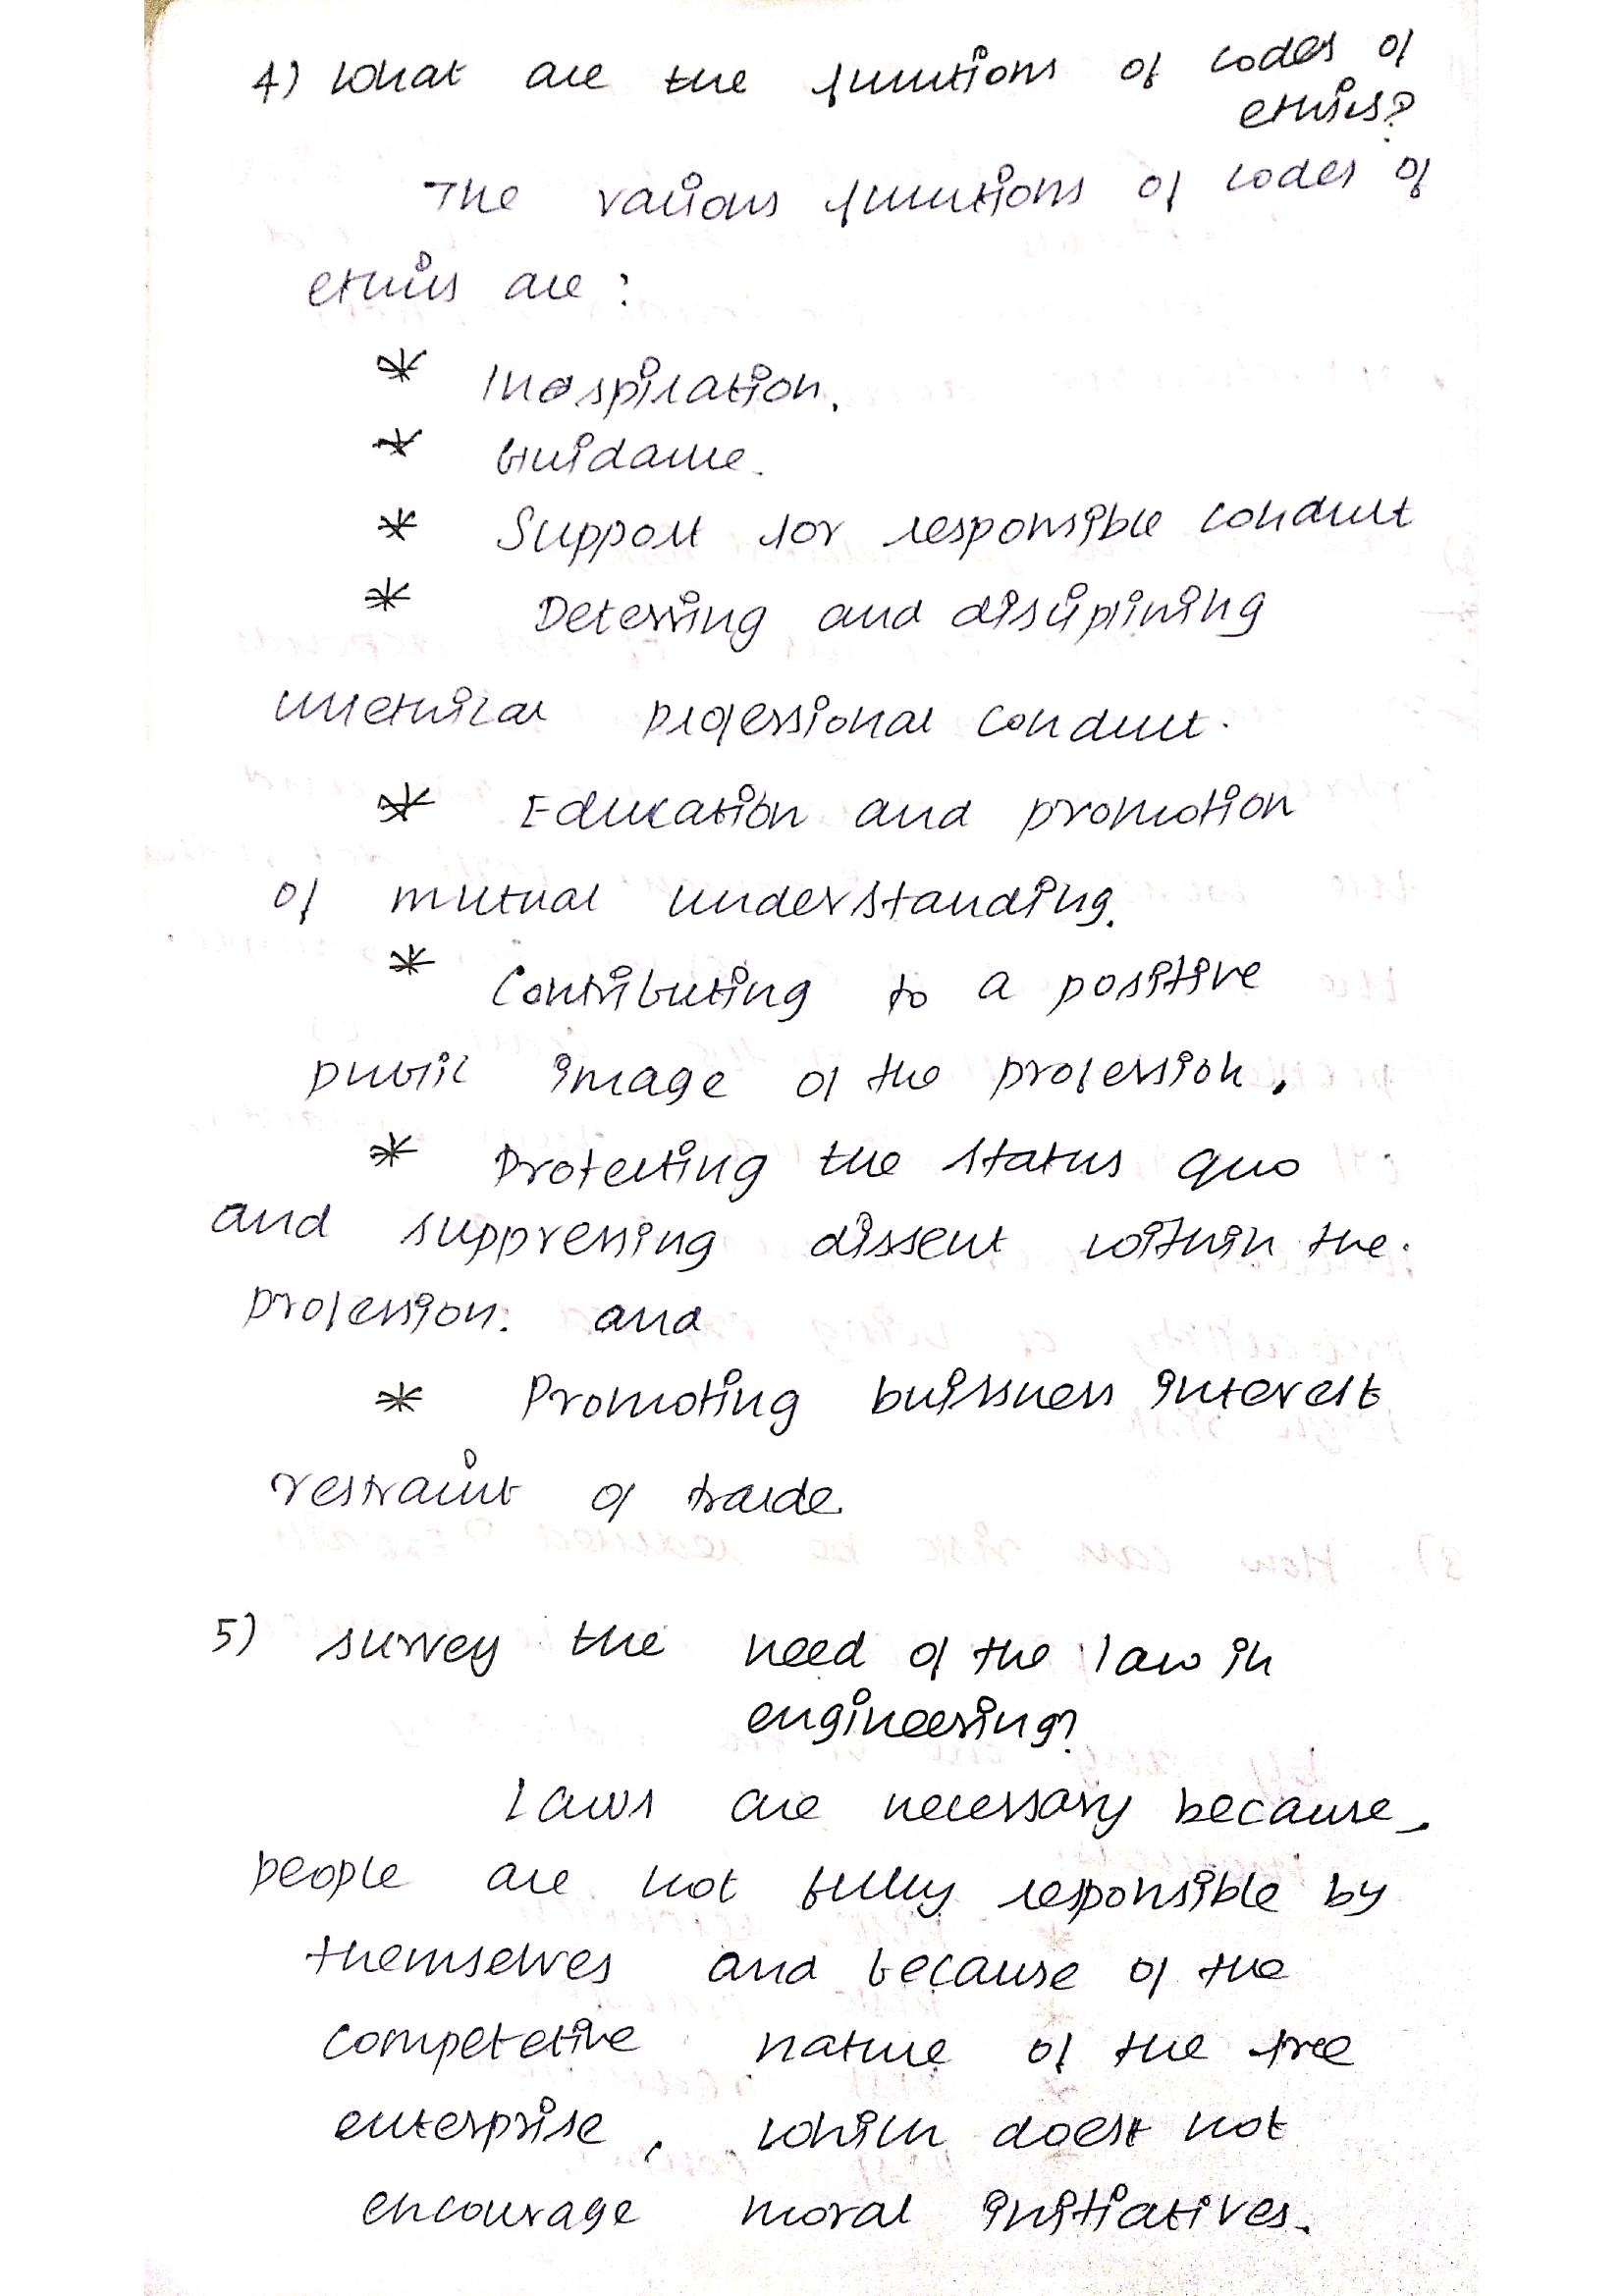 4) What are the functions of codes of
ethics?
The various functions of codes of
ethics are :
* Inspiration.
* Guidance.
* Support for responsible conduct
* Deterring and disciplining
unethical professional conduct.
* Education and promotion
of mutual understanding.
* Contributing to a positive
public image of the profession.
* Protecting the status quo
and suppressing dissent within the
profession. and
* Promoting buissness interest
restraint of trade
5) survey the need of the law in
engineering?
Laws are necessary because,
people are not fully responsible by
themselves and because of the
competetive nature of the free
enterprise, which does not
encourage moral initiatives.